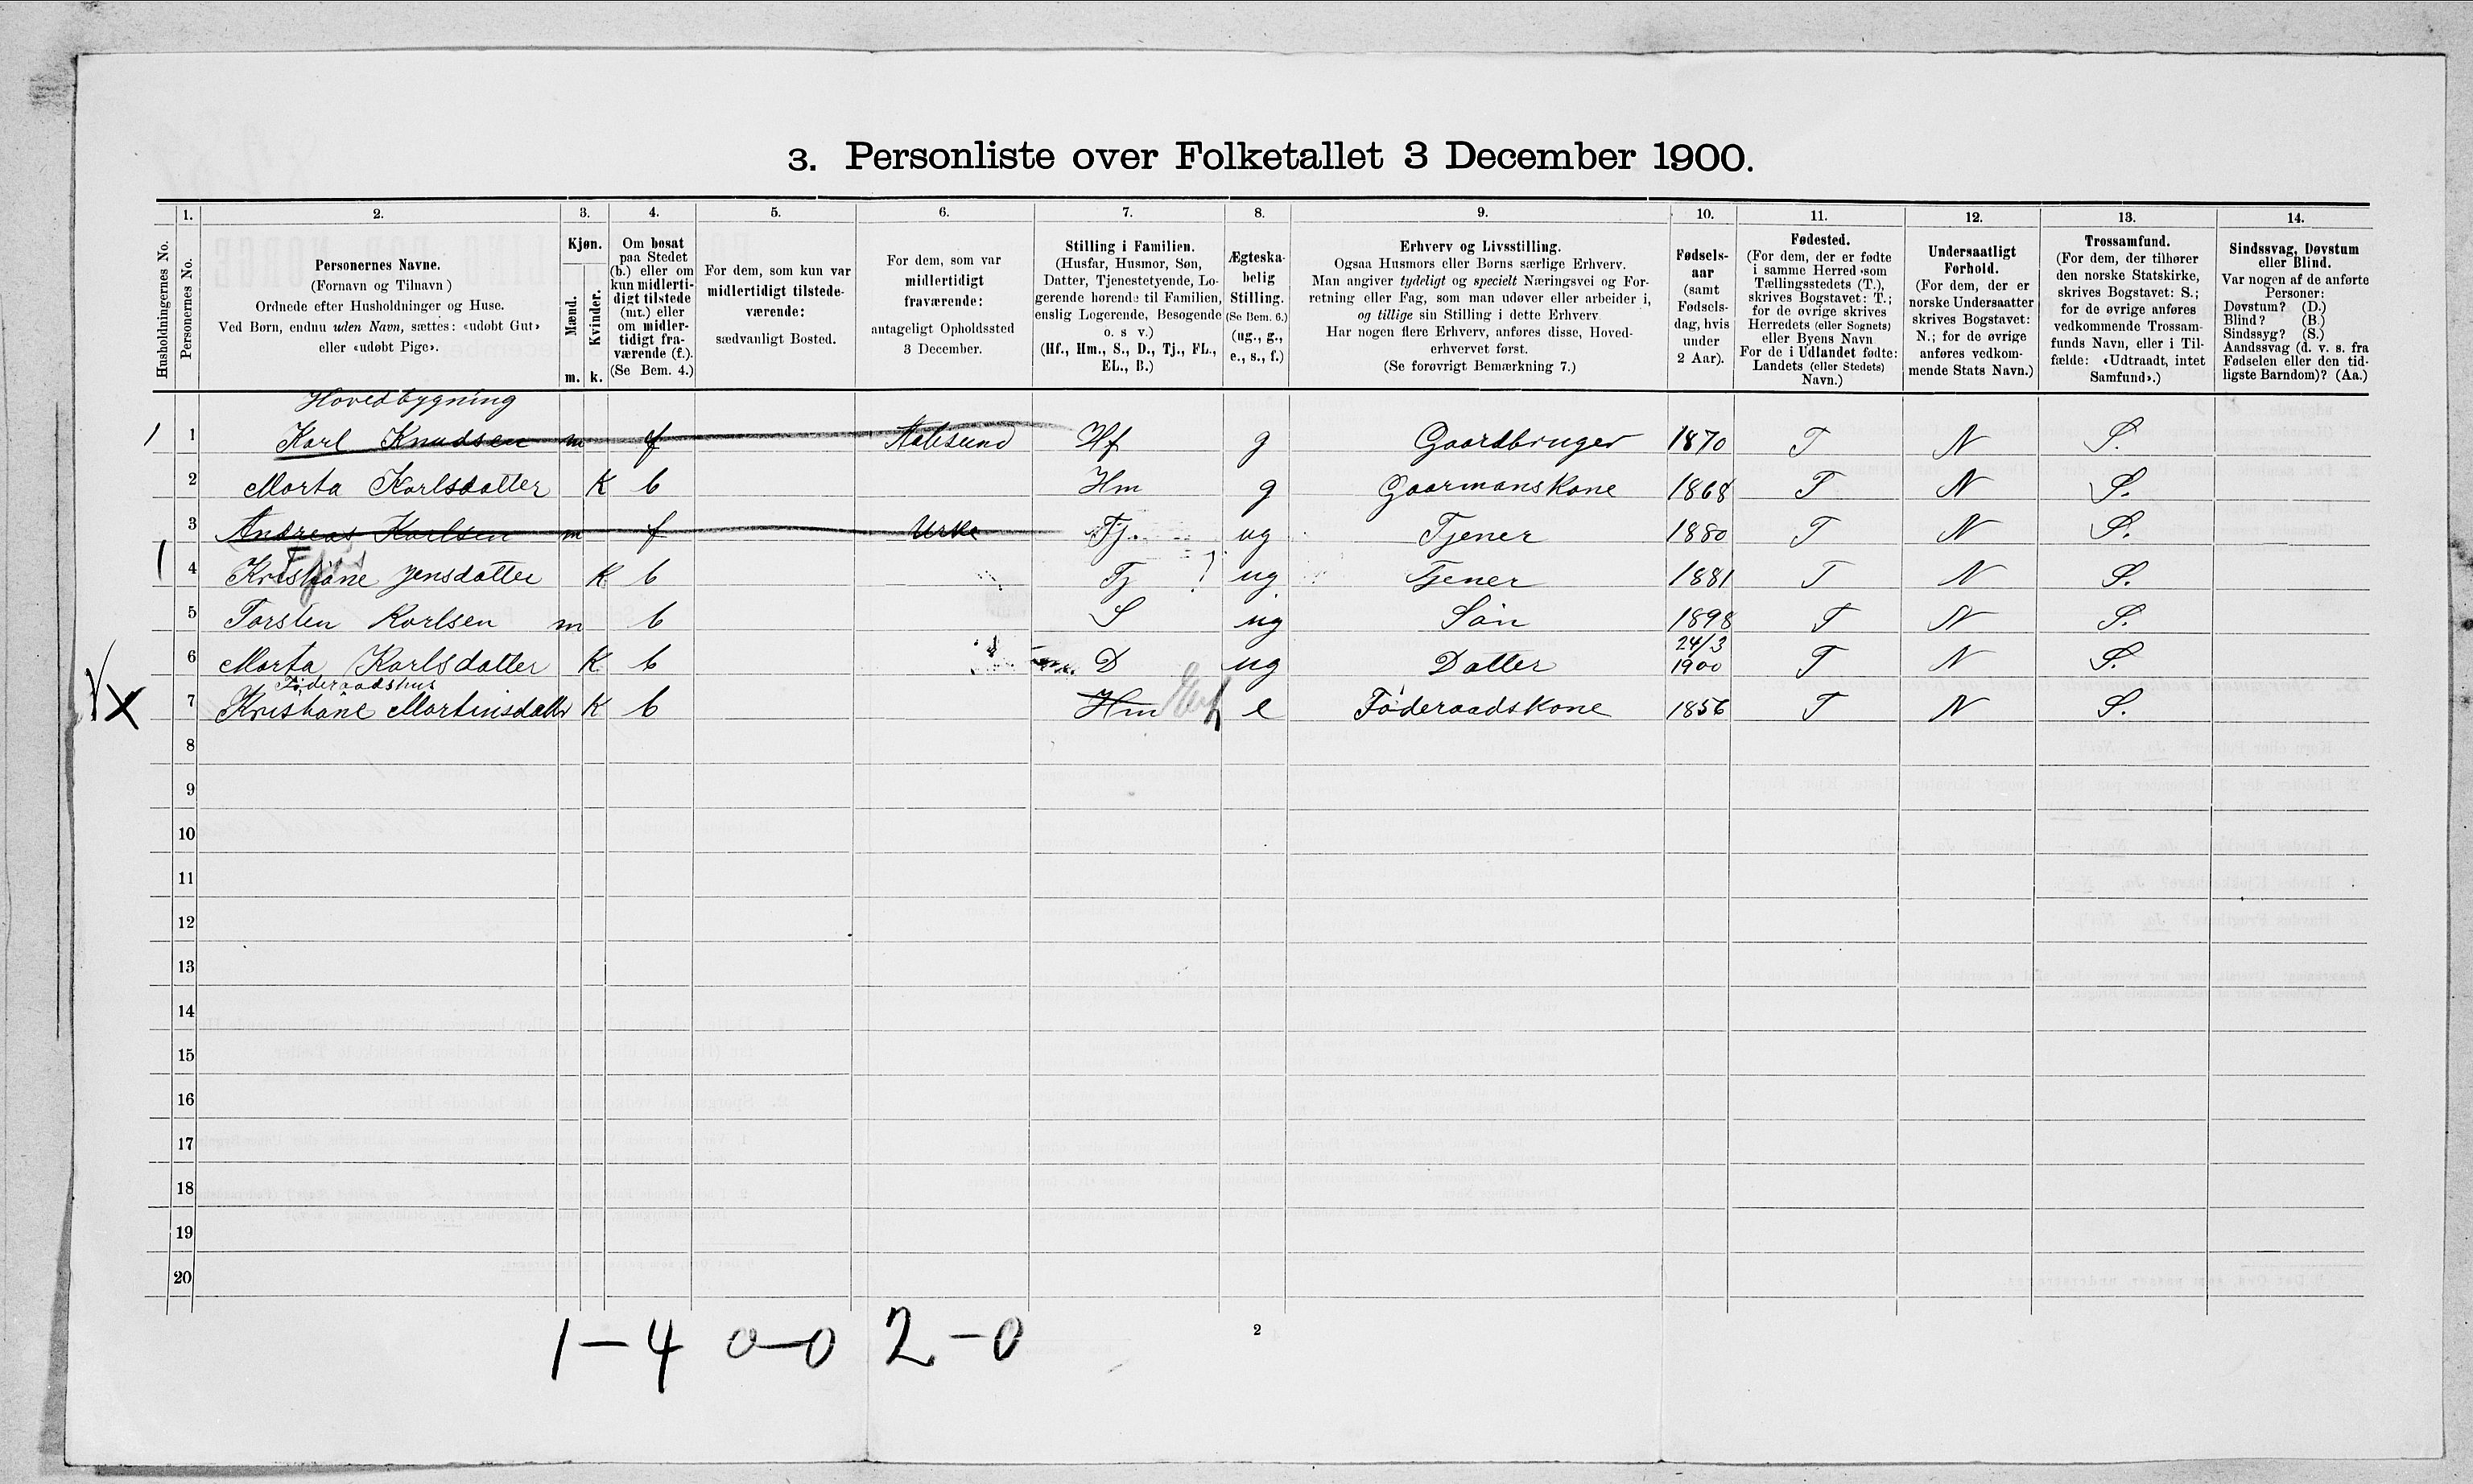 3. Personliste over Folketallet 3 December 1900.
1. 2. 3. 4. 5. 6. 7. 8. 9. 10. 11. 12. 13. 14.
Husholdningernes No.
Personernes No.
Personernes Navne.
(Fornavn og Tilnavn )
Ordnede efter Husholdninger og Huse.
Ved Børn, endnu uden Navn, sættes: «udøbt Gut»
eller «udøbt Pige».
Kjøn.
Mænd.
Kvinder.
m. k.
Om bosat
paa Stedet
(b.) eller om
kun midlerti-
digt tilstede
(mt.) eller
om midler-
tidigt fra-
værende (f.).
(Se Bem. 4.)
For dem, som kun var
midlertidigt tilstede-
værende:
sædvanligt Bosted.
For dem, som var
midlertidigt
fraværende:
antageligt Opholdssted
3 December.
Stilling i Familien.
(Husfar, Husmor, Søn,
Datter, Tjenestetyende, Lo-
gerende hørende til Familien,
enslig Logerende, Besøgende
o. s v.)
(Hf., Hm., S., D., Tj., FL.,
EL., B.)
Ægteska-
belig
Stilling.
(Se Bem. 6.)
(ug., g.,
e., s., f.)
Erhverv og Livsstilling.
Ogsaa Husmors eller Børns særlige Erhverv.
Man angiver tydeligt og specielt Næringsvei og For-
retning eller Fag, som man udøver eller arbeider i,
og tillige sin Stilling i dette Erhverv.
Har nogen flere Erhverv, anføres disse, Hoved-
erhvervet først.
(Se forøvrigt Bemærkning 7.)
Fødsels-
aar
(samt
Fødsels-
dag, hvis
under
2 Aar).
Fødested.
(For dem, der er fødte
i samme Herred som
Tællingsstedets (T.),
skrives Bogstavet: T.;
for de øvrige skrives
Herredets (eller Sognets)
eller Byens Navn
For de i Udlandet fødte:
Landets (eller Stedets)
Navn.)
Undersaatligt
Forhold.
(For dem, der er
norske Undersaatter
skrives Bogstavet:
N.; for de øvrige
anføres vedkom-
mende Stats Navn.)
Trossamfund.
(For dem, der tilhører
den norske Statskirke,
skrives Bogstavet: S.;
for de øvrige anføres
vedkommende Trossam-
funds Navn, eller i Til-
fælde: «Udtraadt, intet
Samfund».)
Sindssvag, Døvstum
eller Blind.
Var nogen af de anførte
Personer:
Døvstum? (D.)
Blind? (B.)
Sindssyg? (S.)
Aandssvag (d. v. s. fra
Fødselen eller den tid-
ligste Barndom)? (Aa.)
Hovedbygning
1 1 Karl Knudsen m f Aalesund Hf g Gaardbruger 1870 T N S.
2 Marta Karlsdatter K b Hm g GaarmansKone 1868 T N S.
3 Andreas Karlsen m f Urke Tj. ug Tjener 1880 T N S.
1 4 Kristiane Jensdatter K b Tj ug Tjener 1881 T N S.
5 Torsten Karlsen m b S ug Søn 1898 T N S.
24/3
6 Marta Karlsdatter K b D ug Datter 1900 T N S.
Føderaadshus
x 7 Kristiane Martinsdatter K b Hm e Føderaadskone 1856 T N S.
8
9
10
11
12
13
14
15
16
17
18
19
20
1-4 0-0 2-0
2